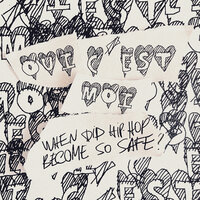 OUI C EST
MOI
WHEN DID HIP HOP
BECOME SO SAFE?
EST